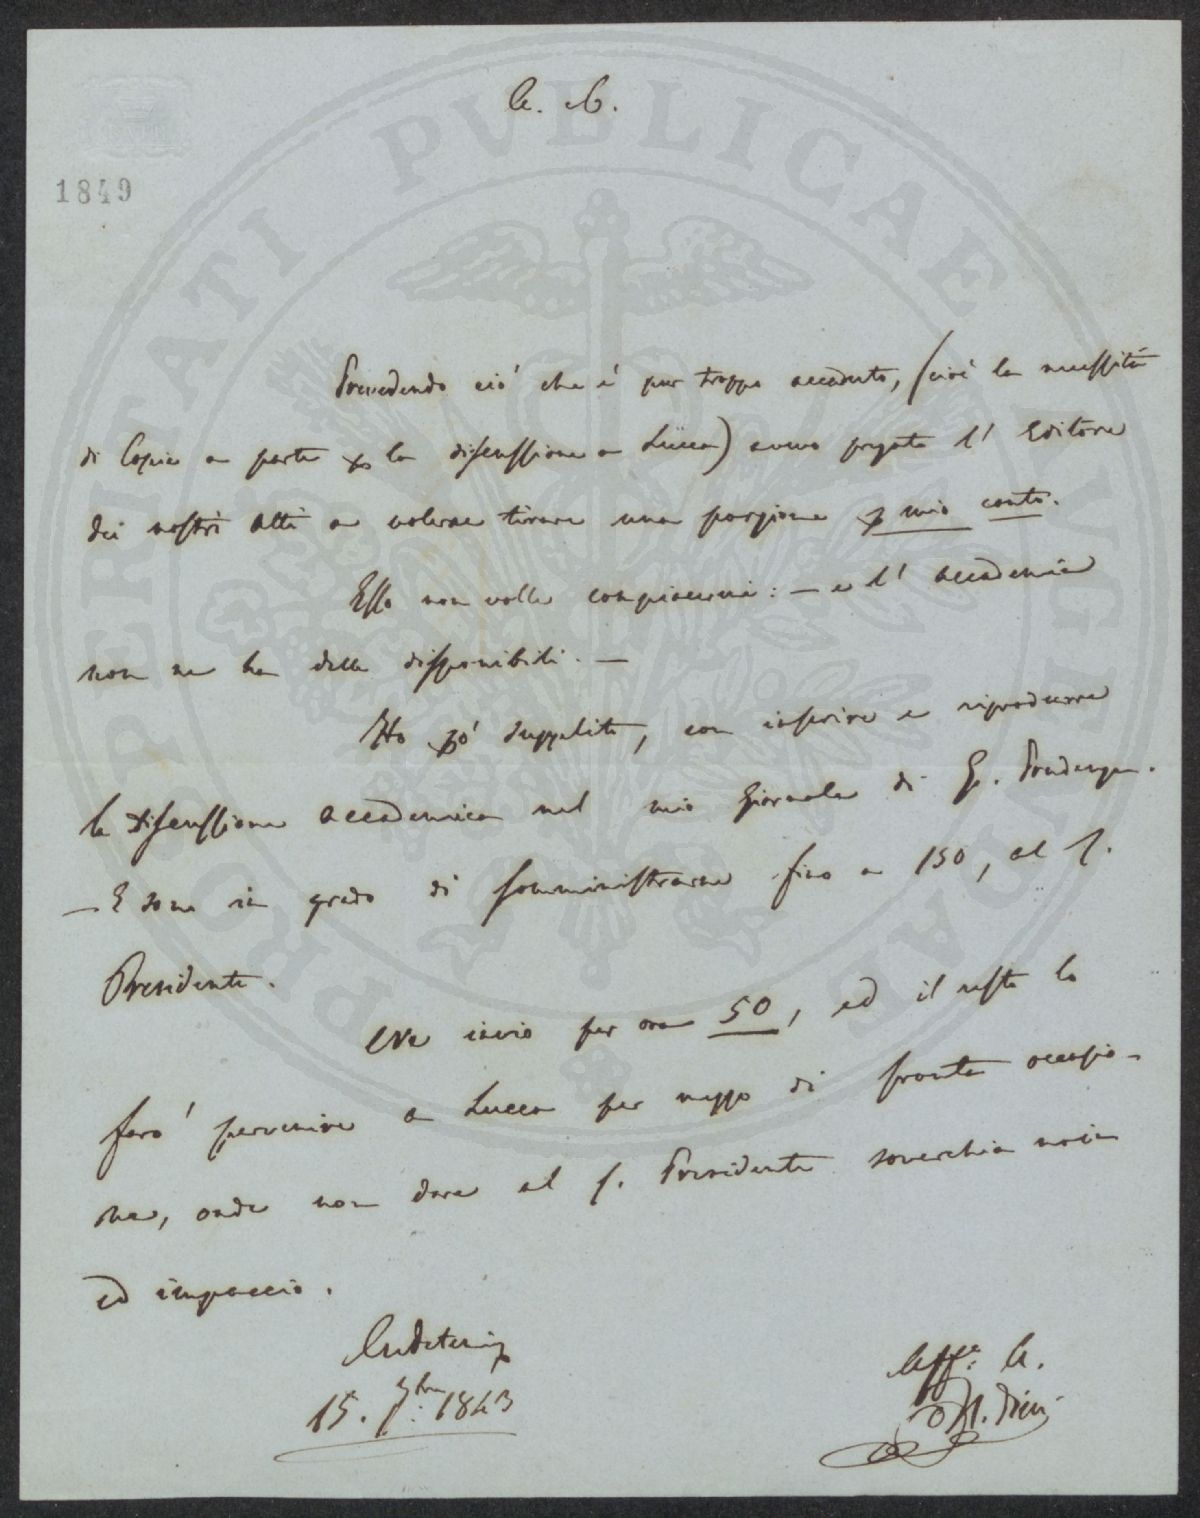 A. C.
1849
PROSPERITATI PVBLICAE AVGENDAE
Prevedendo ciò che è pur troppo accaduto, (cioè la necessità
di Copie a parte per la discussione a Lucca) avevo pregato l' Editore
dei nostri Atti a volerne tirare una porzione per mio conto.
Esso non volle compiacermi: — e l' accademia
non ne ha delle disponibili. —
Ho però supplito, con inserire e riprodurre
la Discussione accademica nel mio Giornale di
— E sono in grado di somministrarne fino a 150, al S.
Presidente.
Ne invio per ora 50, ed il resto lo
farò pervenire a Lucca per mezzo di pronta occasio-
ne, onde non dare al S. Presidente soverchia noia
ed impaccio.
15. 7bre: 1843
Aff.º A.